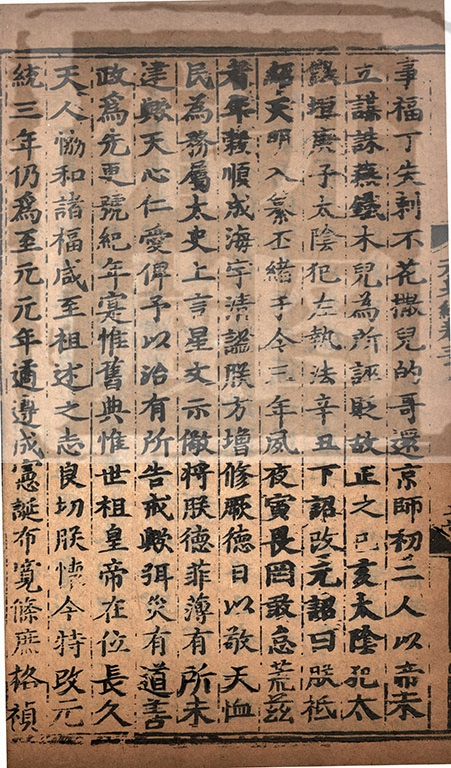 事福丁失剌不花撒兒的哥還京師初二人以帝未
立謀誅燕鐵木兒為所誣貶故正之己亥太陰犯太
微垣庚子太陰犯左執法辛丑下詔改元詔曰朕祗
紹天明入纂丕緒于今三年夙夜寅畏罔敢怠荒茲
者年穀順成海宇清謐朕方增修厥德日以敬天恤
民為務屬太史上言星文示儆將朕德菲薄有所未
逮歟天心仁愛俾予以治有所告戒歟弭災有道善
政為先更號紀年寔惟舊典惟世祖皇帝在位長久
天人恊和諸福咸至祖述之志良切朕懷今特改元
統三年仍為至元元年遹遵成憲誕布寬條庶格禎